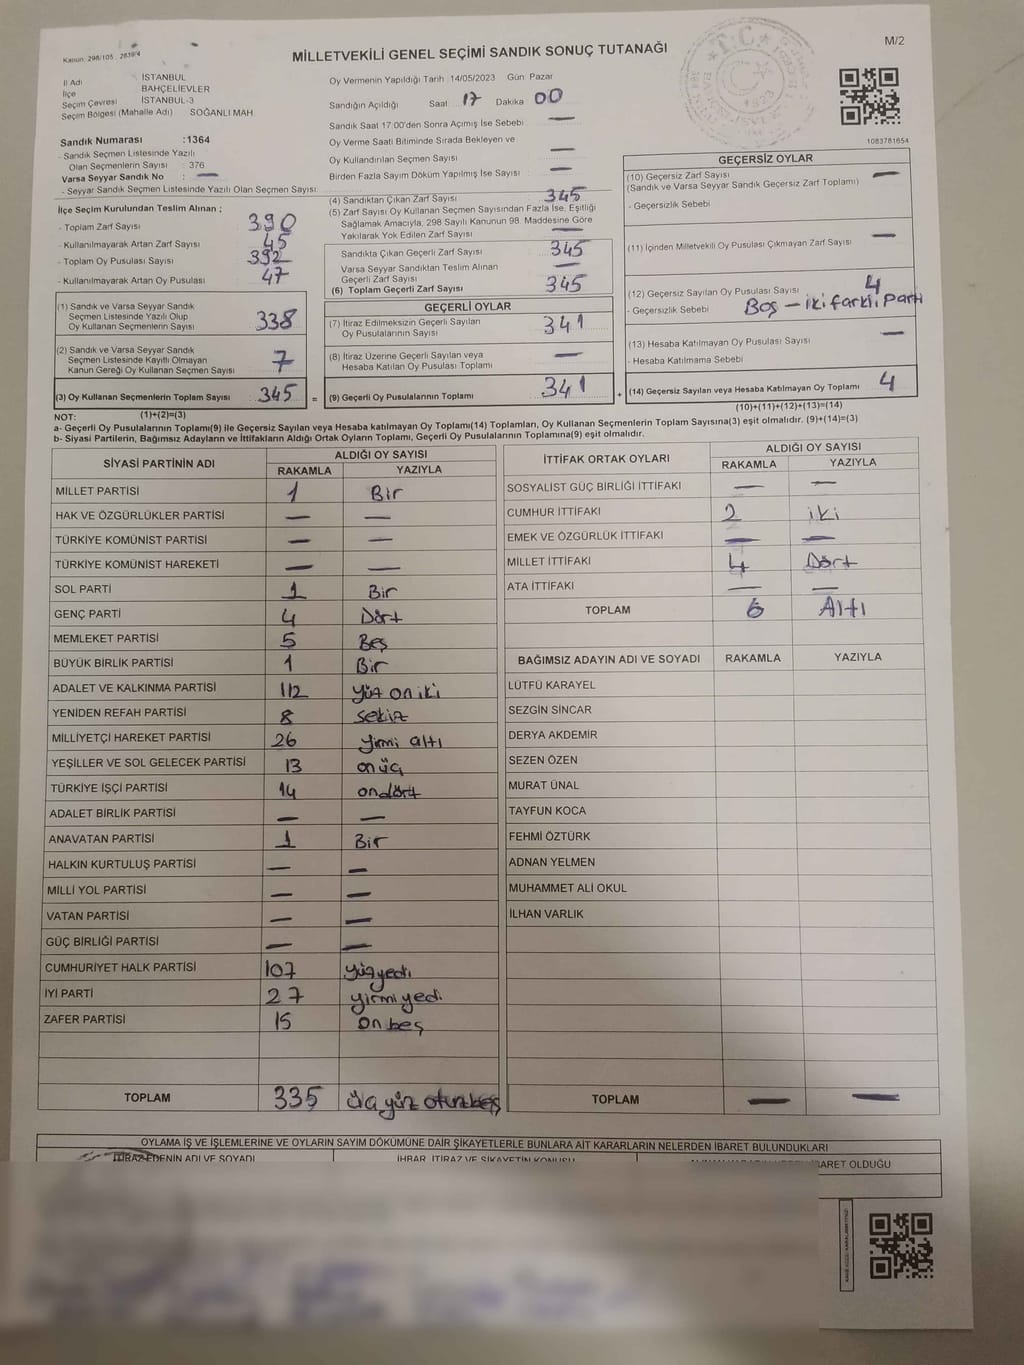 Kanun: 298/105 - 2839/4
MİLLETVEKİLİ GENEL SEÇİMİ SANDIK SONUÇ TUTANAĞI
M/2
İl Adı İSTANBUL
İlçe BAHÇELİEVLER
Seçim Çevresi İSTANBUL-3
Seçim Bölgesi (Mahalle Adı) SOĞANLI MAH.
Sandık Numarası :1364
- Sandık Seçmen Listesinde Yazılı
Olan Seçmenlerin Sayısı : 376
Varsa Seyyar Sandık No : —
- Seyyar Sandık Seçmen Listesinde Yazılı Olan Seçmen Sayısı:
İlçe Seçim Kurulundan Teslim Alınan ;
- Toplam Zarf Sayısı 390
- Kullanılmayarak Artan Zarf Sayısı 45
- Toplam Oy Pusulası Sayısı 392
- Kullanılmayarak Artan Oy Pusulası 47
(1) Sandık ve Varsa Seyyar Sandık
Seçmen Listesinde Yazılı Olup
Oy Kullanan Seçmenlerin Sayısı 338
(2) Sandık ve Varsa Seyyar Sandık
Seçmen Listesinde Kayıtlı Olmayan
Kanun Gereği Oy Kullanan Seçmen Sayısı 7
(3) Oy Kullanan Seçmenlerin Toplam Sayısı 345
Oy Vermenin Yapıldığı Tarih 14/05/2023 Gün Pazar
Sandığın Açıldığı Saat 17 Dakika 00
Sandık Saat 17:00'den Sonra Açılmış İse Sebebi —
Oy Verme Saati Bitiminde Sırada Bekleyen ve
Oy Kullandırılan Seçmen Sayısı —
Birden Fazla Sayım Döküm Yapılmış İse Sayısı —
(4) Sandıktan Çıkan Zarf Sayısı 345
(5) Zarf Sayısı Oy Kullanan Seçmen Sayısından Fazla İse, Eşitliği
Sağlamak Amacıyla, 298 Sayılı Kanunun 98. Maddesine Göre
Yakılarak Yok Edilen Zarf Sayısı —
Sandıkta Çıkan Geçerli Zarf Sayısı 345
Varsa Seyyar Sandıktan Teslim Alınan
Geçerli Zarf Sayısı —
(6) Toplam Geçerli Zarf Sayısı 345
GEÇERLİ OYLAR
(7) İtiraz Edilmeksizin Geçerli Sayılan
Oy Pusulalarının Sayısı 341
(8) İtiraz Üzerine Geçerli Sayılan veya
Hesaba Katılan Oy Pusulası Toplamı —
= (9) Geçerli Oy Pusulalarının Toplamı 341 +
1083781654
GEÇERSİZ OYLAR
(10) Geçersiz Zarf Sayısı —
(Sandık ve Varsa Seyyar Sandık Geçersiz Zarf Toplamı)
- Geçersizlik Sebebi
(11) İçinden Milletvekili Oy Pusulası Çıkmayan Zarf Sayısı —
(12) Geçersiz Sayılan Oy Pusulası Sayısı 4
- Geçersizlik Sebebi Boş - iki farklı parti
(13) Hesaba Katılmayan Oy Pusulası Sayısı —
- Hesaba Katılmama Sebebi
(14) Geçersiz Sayılan veya Hesaba Katılmayan Oy Toplamı 4
NOT: (1)+(2)=(3) (10)+(11)+(12)+(13)=(14)
a- Geçerli Oy Pusulaların Toplamı(9) ile Geçersiz Sayılan veya Hesaba katılmayan Oy Toplamı(14) Toplamları, Oy Kullanan Seçmenlerin Toplam Sayısına(3) eşit olmalıdır. (9)+(14)=(3)
b- Siyasi Partilerin, Bağımsız Adayların ve İttifakların Aldığı Ortak Oyların Toplamı, Geçerli Oy Pusulalarının Toplamına(9) eşit olmalıdır.
SİYASİ PARTİNİN ADI ALDIĞI OY SAYISI
RAKAMLA YAZIYLA
MİLLET PARTİSİ 1 Bir
HAK VE ÖZGÜRLÜKLER PARTİSİ — —
TÜRKİYE KOMÜNİST PARTİSİ — —
TÜRKİYE KOMÜNİST HAREKETİ — —
SOL PARTİ 1 Bir
GENÇ PARTİ 4 Dört
MEMLEKET PARTİSİ 5 Beş
BÜYÜK BİRLİK PARTİSİ 1 Bir
ADALET VE KALKINMA PARTİSİ 112 yüz on iki
YENİDEN REFAH PARTİSİ 8 sekiz
MİLLİYETÇİ HAREKET PARTİSİ 26 yirmi altı
YEŞİLLER VE SOL GELECEK PARTİSİ 13 on üç
TÜRKİYE İŞÇİ PARTİSİ 14 ondört
ADALET BİRLİK PARTİSİ — —
ANAVATAN PARTİSİ 1 Bir
HALKIN KURTULUŞ PARTİSİ — —
MİLLİ YOL PARTİSİ — —
VATAN PARTİSİ — —
GÜÇ BİRLİĞİ PARTİSİ — —
CUMHURİYET HALK PARTİSİ 107 yüzyedi
İYİ PARTİ 27 yirmiyedi
ZAFER PARTİSİ 15 on beş
TOPLAM 335 üçyüz otuzbeş
İTTİFAK ORTAK OYLARI ALDIĞI OY SAYISI
RAKAMLA YAZIYLA
SOSYALİST GÜÇ BİRLİĞİ İTTİFAKI — —
CUMHUR İTTİFAKI 2 iki
EMEK VE ÖZGÜRLÜK İTTİFAKI — —
MİLLET İTTİFAKI 4 Dört
ATA İTTİFAKI — —
TOPLAM 6 Altı
BAĞIMSIZ ADAYIN ADI VE SOYADI RAKAMLA YAZIYLA
LÜTFÜ KARAYEL
SEZGİN SİNCAR
DERYA AKDEMİR
SEZEN ÖZEN
MURAT ÜNAL
TAYFUN KOCA
FEHMİ ÖZTÜRK
ADNAN YELMEN
MUHAMMET ALİ OKUL
İLHAN VARLIK
TOPLAM — —
OYLAMA İŞ VE İŞLEMLERİNE VE OYLARIN SAYIM DÖKÜMÜNE DAİR ŞİKAYETLERLE BUNLARA AİT KARARLARIN NELERDEN İBARET BULUNDUKLARI
İTİRAZ EDENİN ADI VE SOYADI İHBAR, İTİRAZ VE ŞİKAYETİN KONUSU İBARET OLDUĞU